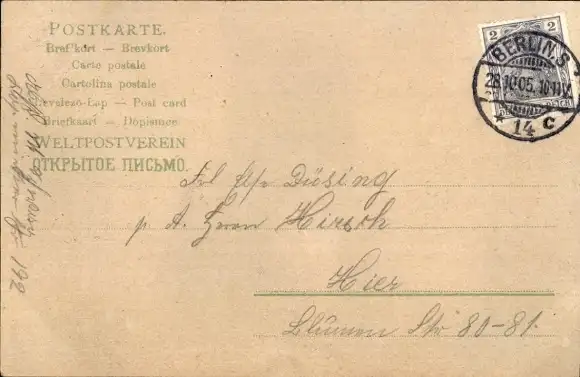 POSTKARTE.
Bref'kort — Brevkort
Carte postale
Cartolina postale
Levelező-Lap — Post card
Briefkaart — Dopisnice
WELTPOSTVEREIN
ОТКРЫТОЕ ПИСЬМО.
2 2
BERLIN.S
28.10.05. 10-11V.
* 14 c
Frl Else Düsing
p A. Herrn Hirsch
Hier
Blumen Str 80-81.
192